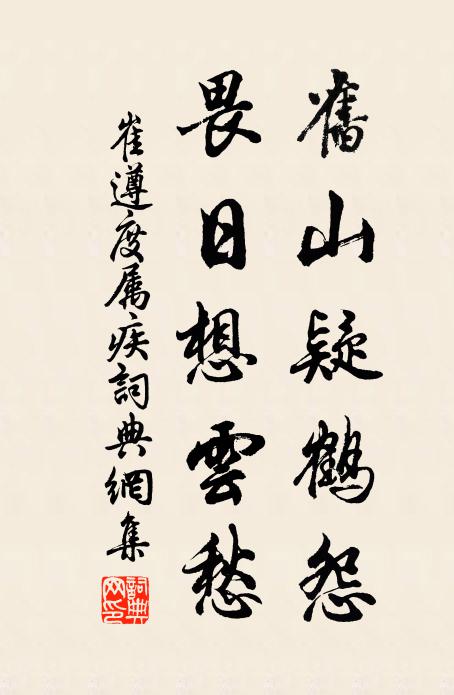 舊山疑鶴怨
畏日想雲愁
崔遵度属疾詞典網集
詞典網印